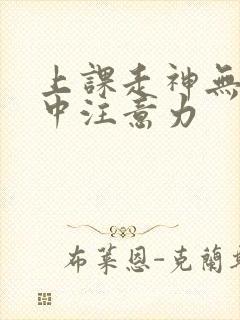 上課走神無
中注意力
布萊恩-克蘭